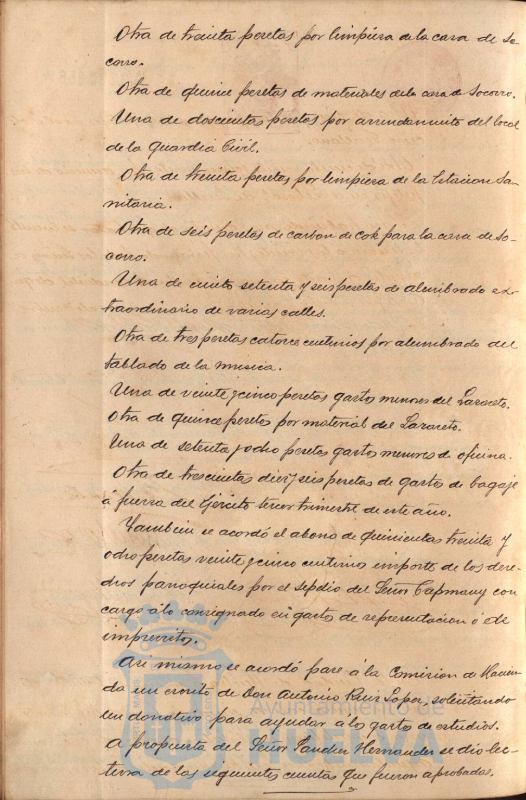 Otra de treinta pesetas por limpieza de la casa de So-
corro.
Otra de quince pesetas de materiales de la casa de Socorro.
Una de doscientas pesetas por arrendamiento del local
de la Guardia Civil.
Otra de treinta pesetas por limpieza de la Estacion Sa-
nitaria.
Otra de seis pesetas de carbon de cok para la casa de So-
corro.
Una de ciento setenta y seis pesetas de alumbrado ex-
traordinario de varias calles.
Otra de tres pesetas catorce centimos por alumbrado del
tablado de la musica.
Una de veinte y cinco pesetas gastos menores del Lazareto.
Otra de quince pesetas por material del Lazareto.
Una de setenta y ocho pesetas gastos menores de oficina.
Otra de trescientas diez y seis pesetas de gastos de bagaje
á fuerza del Ejército tercer trimestre de este año.
Tambien se acordó el abono de quinientas treinta y
ocho pesetas veinte y cinco centimos importe de los dere-
chos parroquiales por el sepelio del Señor Capmany con
cargo á lo consignado en gastos de representacion ó de
imprevistos.
Asi mismo se acordó pase á la Comision de Hacien-
da un escrito de Don Antonio Ruiz Lopez, solicitando
un donativo para ayudar a los gastos de estudios.
A propuesta del Señor Hernandez se dio lec-
tura de las siguientes cuentas que fueron aprobadas.
Ayuntamiento de
HUELVA